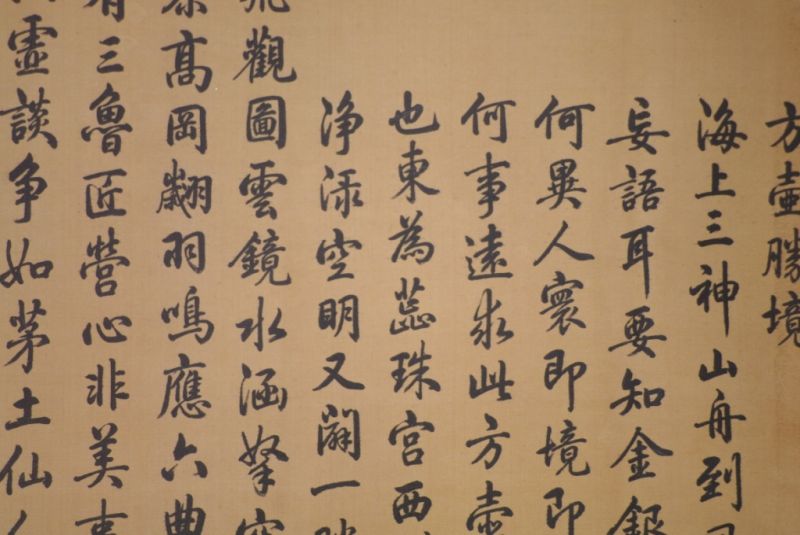 方壺勝境
海上三神山舟到
妄語耳要知金銀
何異人寰即境即
何事遠求此方壺
也東為蕊珠宮西
淨渌空明又闢一
觀圖雲鏡水涵拏空
高岡翽羽鳴應六曲
有三魯匠營心非美事
虛談爭如茅土仙